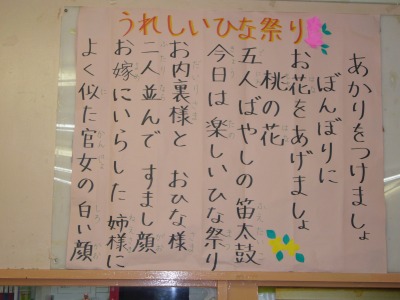 うれしいひな祭り
あかりをつけましょ
ぼんぼりに
お花をあげましょ
桃の花
五人ばやしの笛太鼓
今日は楽しいひな祭り
お内裏様と おひな様
二人並んで すまし顔
お嫁にいらした 姉様に
よく似た官女の白い顔